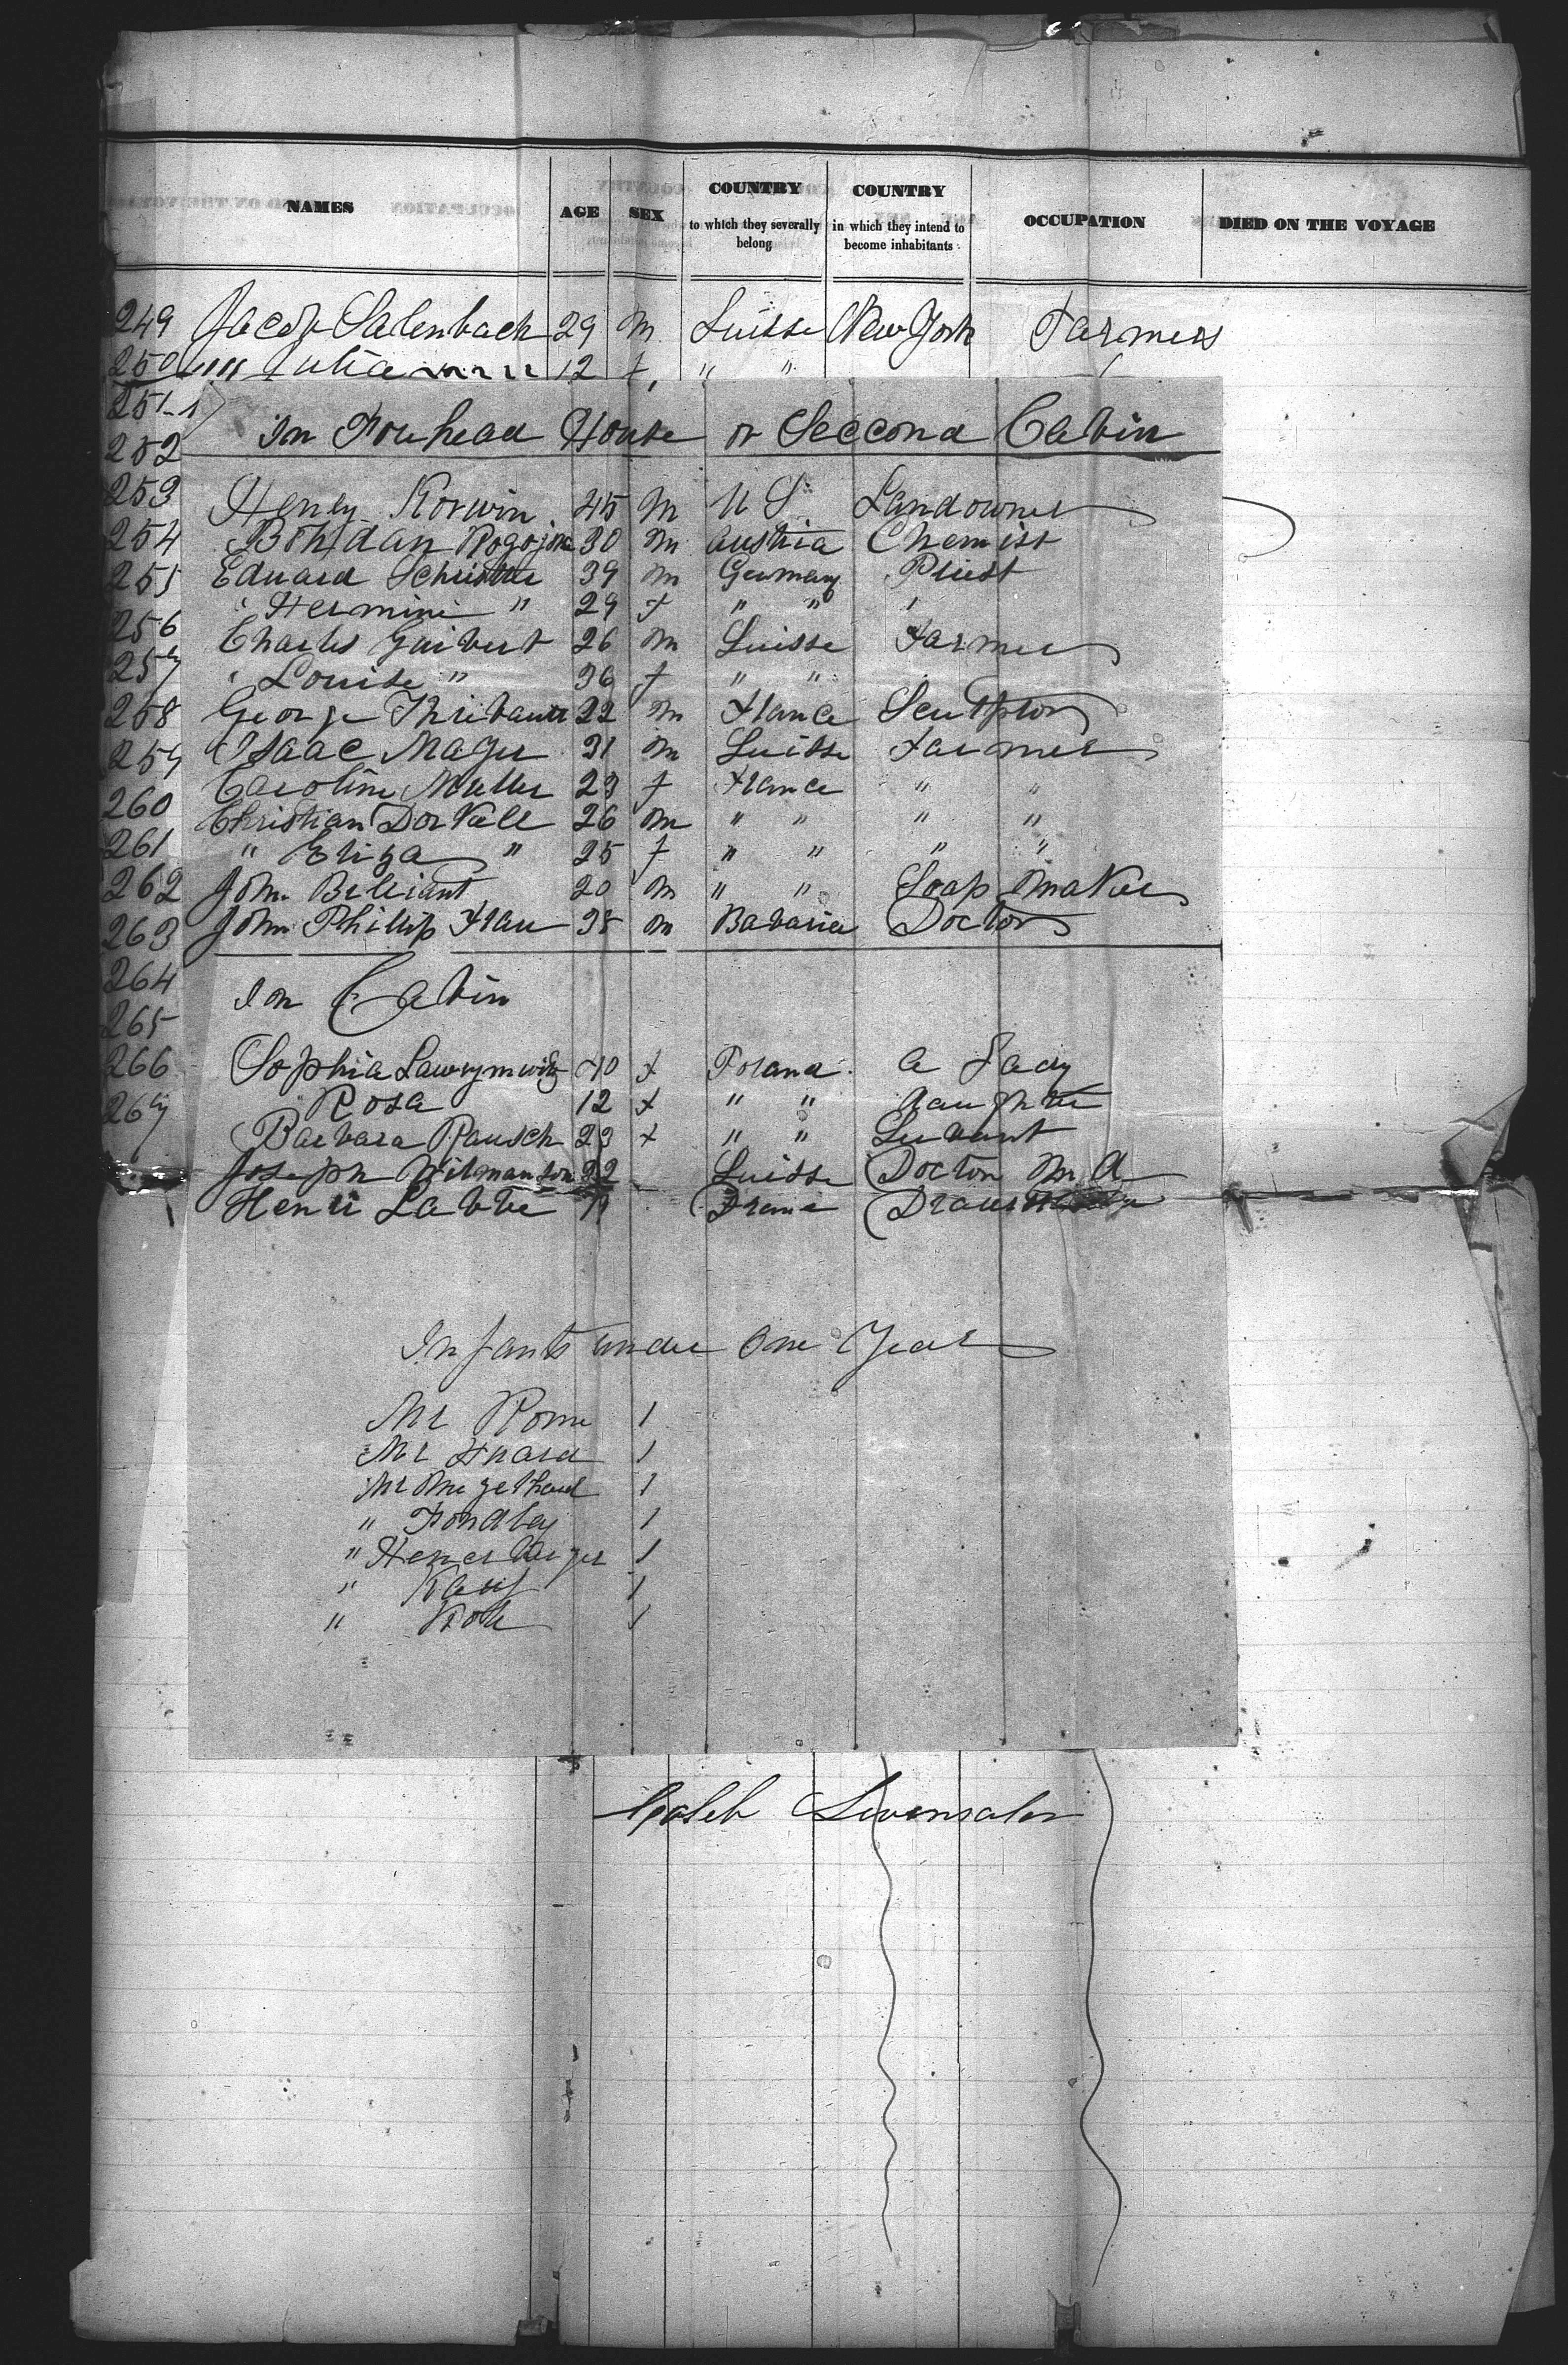 NAMES AGE SEX COUNTRY to which they severally belong COUNTRY in which they intend to become inhabitants OCCUPATION DIED ON THE VOYAGE
249 Jacob Salenbach 29 m Suisse New York Farmers
250 " Julia 12 f " "
251
252 In Fourhead House or Seccond Cabin
253 Henry Korwin 45 m U S Landowner
254 Bohdan 30 m Austria Chemist
255 Eduard 39 m Germany Priest
" Hermini " 29 f " " "
256 Charles Guibert 26 m Suisse Farmer
257 " Louise " 36 f " "
258 George 22 m France Sculptor
259 Isaac Mayer 31 m Suisse Farmer
Caroline Muller 23 f France " "
260 Christian DorVall 26 m " " " "
261 " Eliza " 25 f " " " "
262 John Briliant 20 m " " Soap Maker
263 John Phillip Frau 38 m Bavaria Doctor
264 In Cabin
265
266 Sophia 40 f Poland a Lady
267 Rosa 12 f " " daughter
Barbara Rausch 23 f " " Servant
Joseph 22 Suisse Doctor M.A
Henri Labbé
Infants under One Year
Mr Rome 1
Mr 1
Mr 1
" 1
" 1
" Kauf 1
" 1
Caleb Levensaler